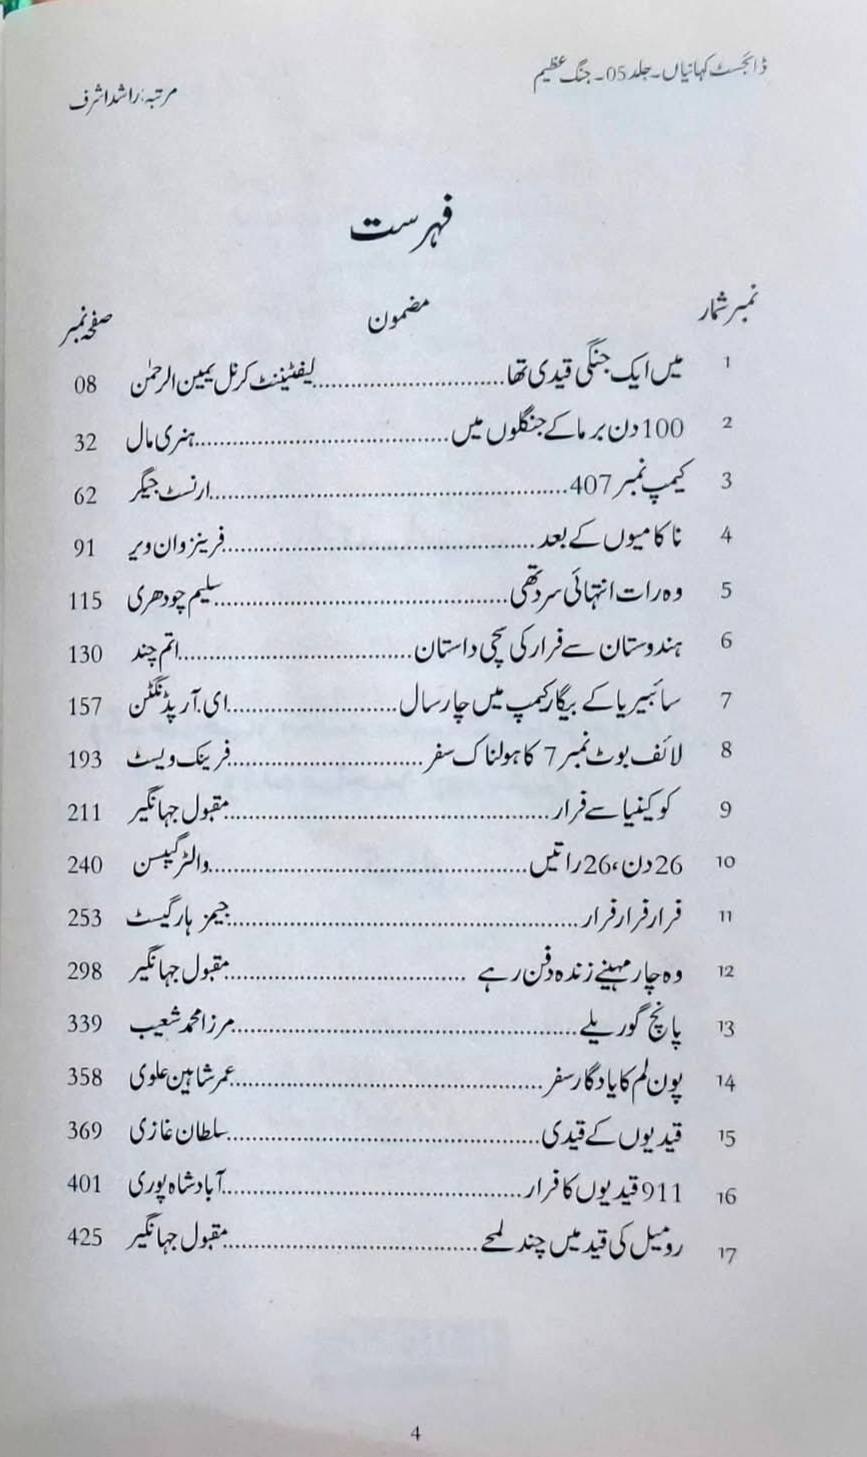 ڈائجسٹ کہانیاں۔جلد05۔جنگ عظیم
مرتبہ:راشد اشرف
فہرست
نمبر شمار مضمون صفحہ نمبر
1 میں ایک جنگی قیدی تھا..............................لیفٹیننٹ کرنل یمین الرحمٰن 08
2 100 دن برما کے جنگلوں میں..............................ہنری مال 32
3 کیمپ نمبر 407..............................ارنسٹ جیگر 62
4 ناکامیوں کے بعد..............................فرینز وان ویر 91
5 وہ رات انتہائی سرد تھی..............................سلیم چودھری 115
6 ہندوستان سے فرار کی سچی داستان..............................اتم چند 130
7 سائبیریا کے بیگار کیمپ میں چار سال..............................ای.آر پڈنگٹن 157
8 لائف بوٹ نمبر 7 کا ہولناک سفر..............................فرینک ویسٹ 193
9 کوکینیا سے فرار..............................مقبول جہانگیر 211
10 26 دن،26 راتیں..............................والٹر گبسن 240
11 فرار فرار فرار..............................جیمز ہارگیسٹ 253
12 وہ چار مہینے زندہ دفن رہے ..............................مقبول جہانگیر 298
13 پانچ گوریلے..............................مرزا محمد شعیب 339
14 پون لم کا یادگار سفر..............................عمر شاہین علوی 358
15 قیدیوں کے قیدی..............................سلطان غازی 369
16 911 قیدیوں کا فرار..............................آباد شاہ پوری 401
17 رومیل کی قید میں چند لمحے..............................مقبول جہانگیر 425
4